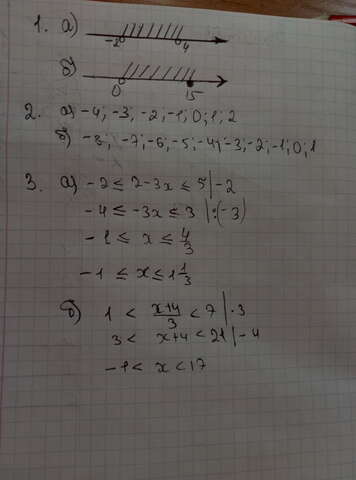 1. а)
-2 4
б)
0 15
2. а) -4; -3; -2; -1; 0; 1; 2
б) -8; -7; -6; -5; -4; -3; -2; -1; 0; 1
3. а) -2 ≤ 2-3x ≤ 5 | -2
-4 ≤ -3x ≤ 3 | :(-3)
-1 ≤ x ≤ 4/3
-1 ≤ x ≤ 1 1/3
б) 1 < (x+4)/3 < 7 | ·3
3 < x+4 < 21 | -4
-1 < x < 17